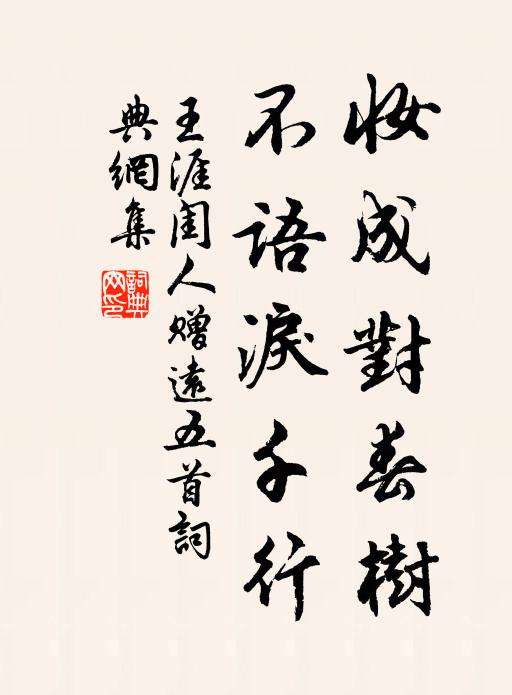 妝成對春樹
不語淚千行
王涯閨人赠遠五首詞
典網集
詞典網印